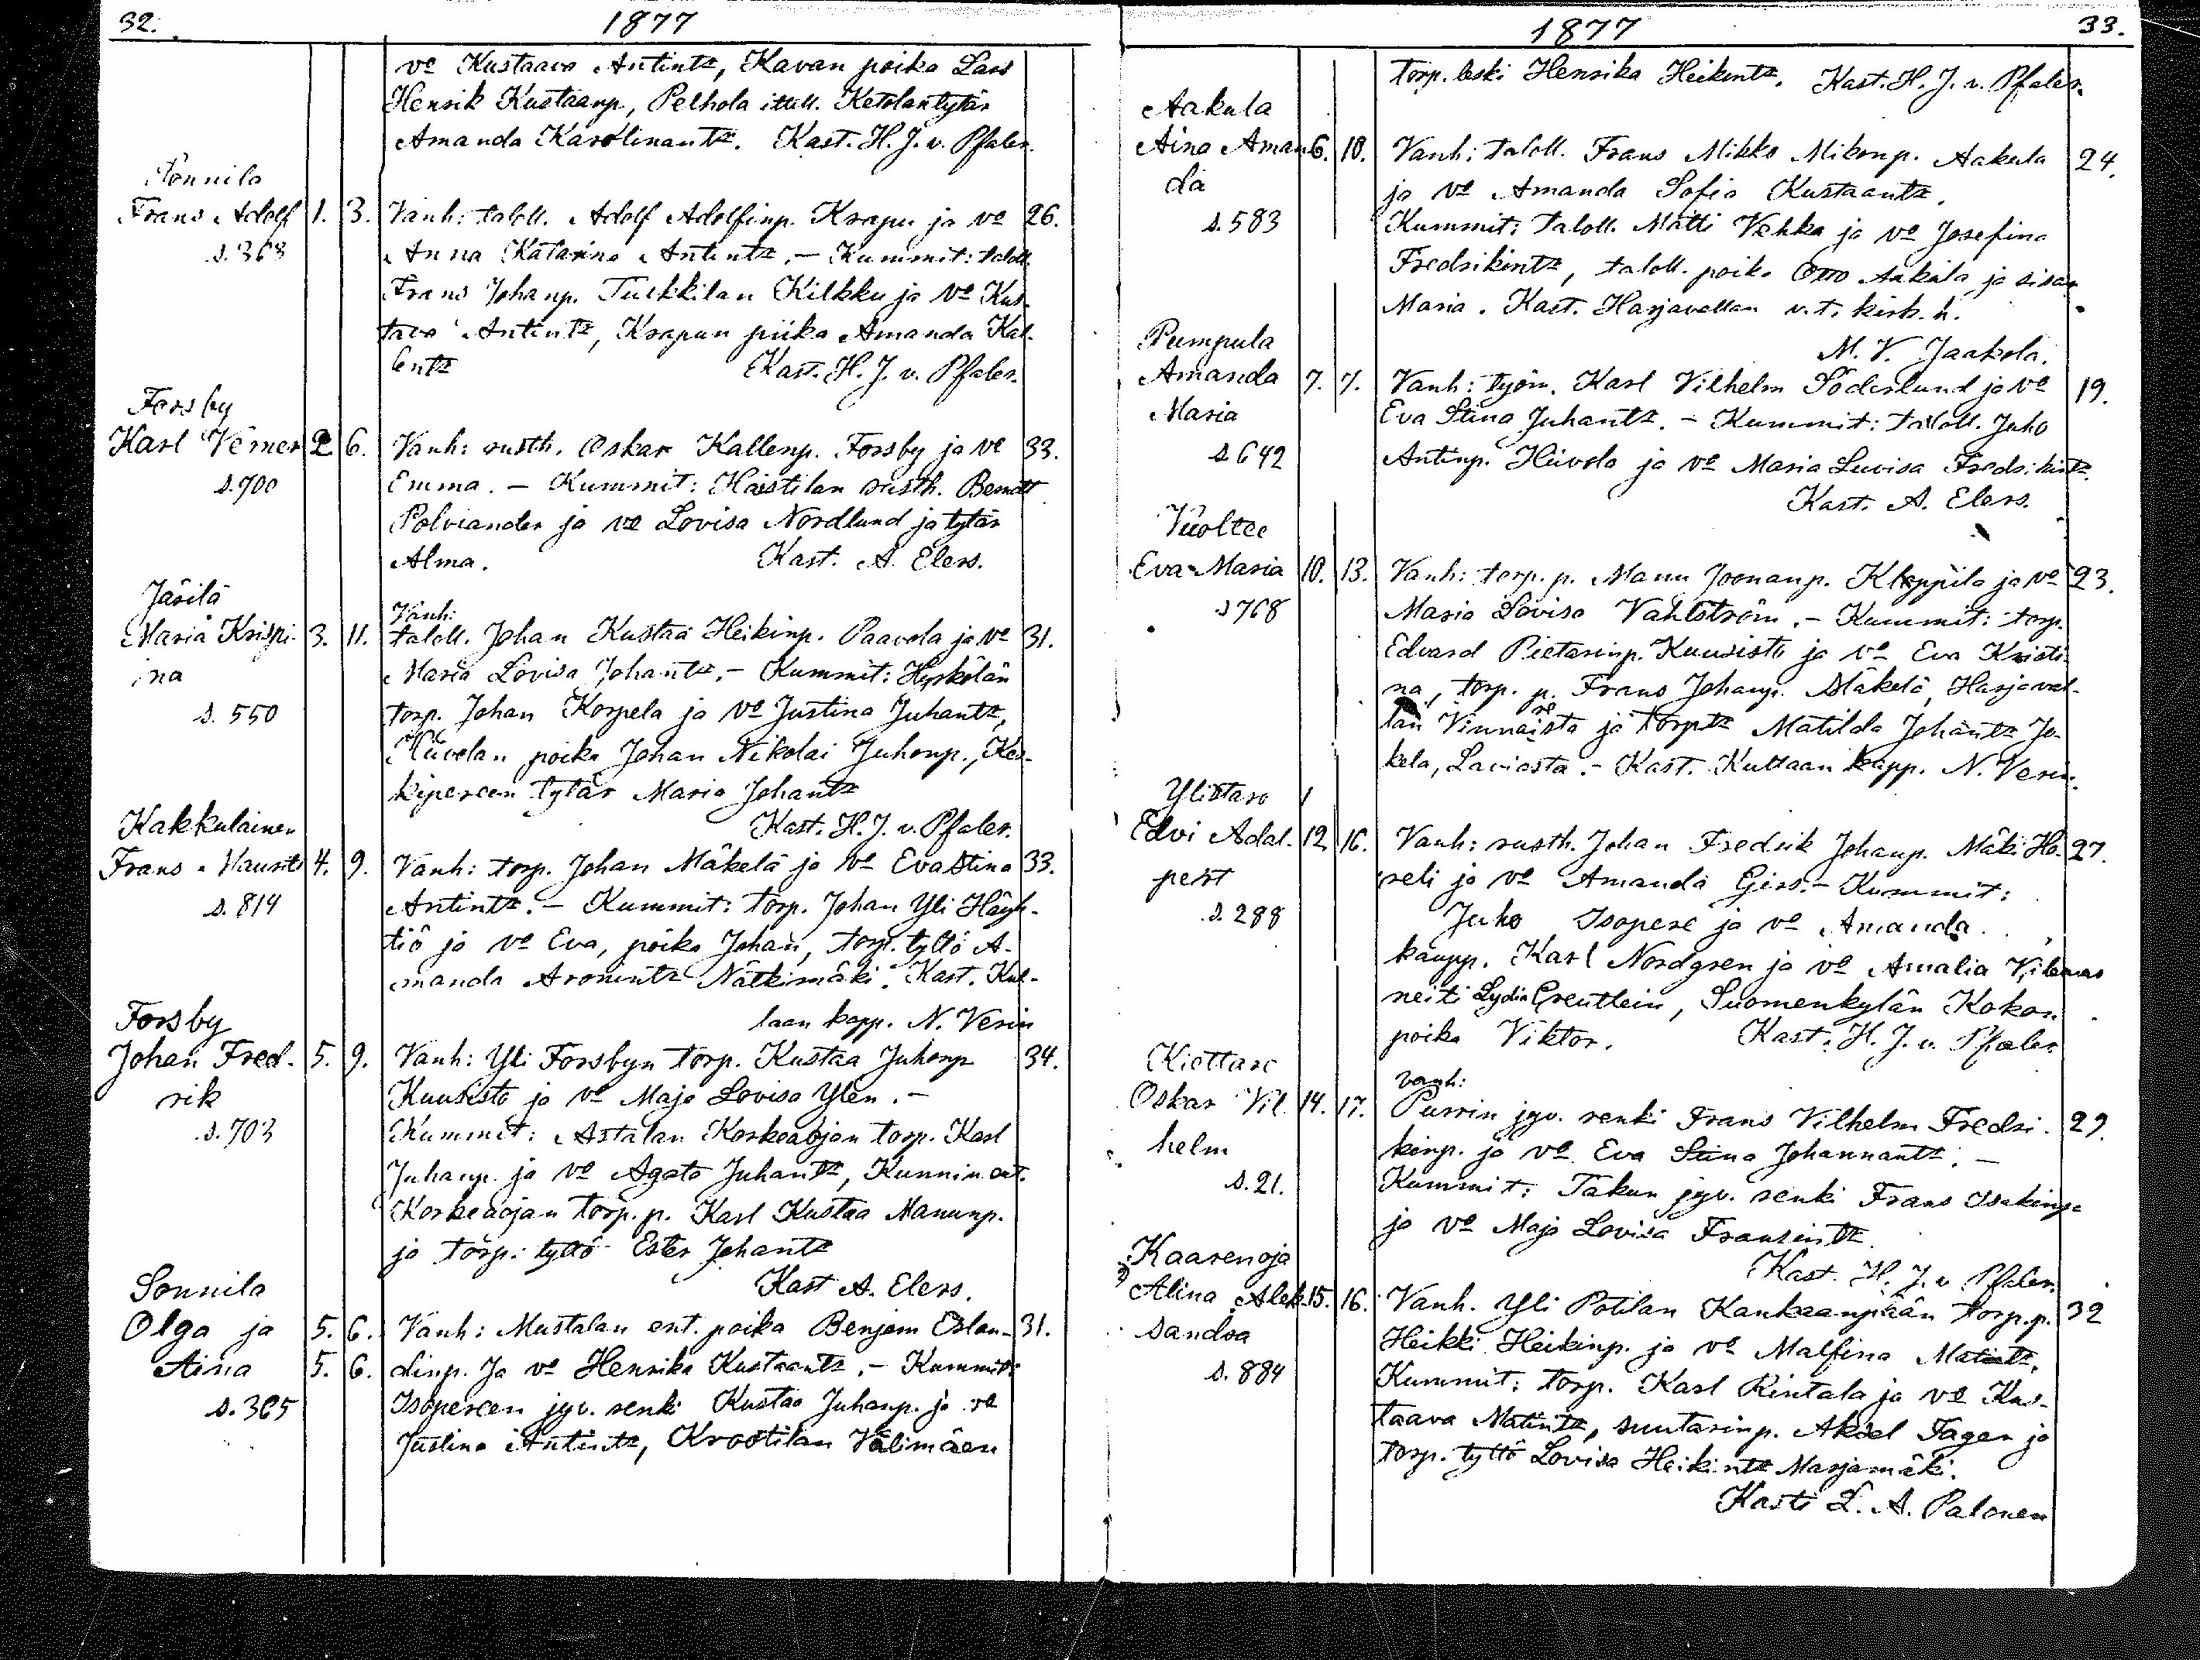 32. 1877
vo Kustaava Antintr, Kavan poika Lars
Henrik Kustaanp, Pelhola ittell. Ketolan tytär
Amanda Karolinantr. Kast. H. J. v. Pfaler.
Sonnila
Frans Adolf 1. 3. Vanh: taloll. Adolf Adolfinp. Krapu ja vo 26.
s. 368 Anna Katarina Antintr. – Kummit: taloll.
Frans Johanp. Turkkilan Kilkku ja vo Kus-
tava Antintr, Krapun piika Amanda Kal-
lentr Kast. H. J. v. Pfaler.
Forsby
Karl Verner 2. 6. Vanh: rusth. Oskar Kallenp. Forsby ja vo 33.
s. 700 Emma. – Kummit: Haistilan rusth. Berndt
Polviander ja vo Lovisa Nordlund ja tytär
Alma. Kast. A. Elers.
Järilä Vanh:
Maria Krispi- 3. 11. taloll. Johan Kustaa Heikinp. Paavola ja vo 31.
ina Maria Lovisa Johantr. – Kummit: Hyrkölän
s. 550 torp. Johan Korpela ja vo Justina Juhantr,
Hiivolan poika Johan Nikolai Juhonp., Kes-
kipereen tytär Maria Johantr
Kast. H. J. v. Pfaler.
Kakkulainen
Frans Maurits 4. 9. Vanh: torp. Johan Mäkelä ja vo Eva Stina 33.
s. 814 Antintr. – Kummit: torp. Johan Yli Häyh-
tiö ja vo Eva, poika Johan, torp. tyttö A-
manda Aronintr Nätkimäki. Kast. Kul-
laan kapp. N. Verin
Forsby
Johan Fred- 5. 9. Vanh: Yli Forsbyn torp. Kustaa Juhonp 34.
rik Kuusisto ja vo Maja Lovisa Ylen. –
s. 703 Kummit: Astalan Korkeaojan torp. Karl
Juhanp. ja vo Agata Juhantr, Kunnin ent.
Korkeaojan torp. p. Karl Kustaa Manunp.
ja torp. tyttö Ester Johantr
Kast A. Elers.
Sonnila
Olga ja 5. 6. Vanh: Mustalan ent. poika Benjam Erlan- 31.
Aina 5. 6. dinp. Ja vo Henrika Kustaantr. – Kummit:
s. 365 Isopereen jyv. renki Kustaa Juhanp. ja vo
Justina Antintr, Krootilan Välimäen
1877 33.
torp. leski Henrika Heikintr. Kast. H. J. v. Pfaler.
Aakula
Aina Aman 6. 10. Vanh: taloll. Frans Mikko Mikonp. Aakula 24.
da ja vo Amanda Sofia Kustaantr.
s. 583 Kummit: taloll. Matti Vehka ja vo Josefina
Fredrikintr, taloll. poika Otto Aakula ja sisar
Maria. Kast. Harjavallan v.t. kirk. h.
M. V. Jaakola.
Pumpula
Amanda 7. 7. Vanh: työm. Karl Vilhelm Söderlund ja vo 19.
Maria Eva Stina Juhantr. – Kummit: taloll. Juho
s 642 Antinp. Hiivola ja vo Maria Luvisa Fredrikintr.
Kast. A. Elers.
Vuoltee
Eva Maria 10. 13. Vanh: torp. p. Manu Joonanp. Kleppilä ja vo 23.
s 768 Maria Lovisa Vahlström. – Kummit: torp.
Edvard Pietarinp. Kuusisto ja vo Eva Kristi-
na, torp. p. Frans Johanp. Mäkelä, Harjaval-
lan Vinnaresta ja torptr Matilda Johantr Jo-
kela, Laviasta. – Kast. Kullaan kapp. N. Verin.
Ylistaro
Edvi Adal- 12 16. Vanh: rusth. Johan Fredrik Johanp. Mäki Ha- 27.
pert reli ja vo Amanda Girs. – Kummit:
s. 288 Juho Isopere ja vo Amanda.
kaupp. Karl Nordgren ja vo Amalia
neiti Lydia Greutlein, Suomenkylän Kokon
poika Viktor. Kast. H. J. v. Pfaler
Kiettare vanh:
Oskar Vil 14. 17. Purrin jyv. renki Frans Vilhelm Fredri- 29.
helm kinp. ja vo Eva Stina Johannantr. –
s. 21. Kummit: Takun jyv. renki Frans Isakinp.
ja vo Maja Lovisa Fransintr.
Kast. H. J. v. Pfaler.
Kaarenoja
Alina Alek- 15. 16. Vanh. Yli Potilan Kankaanpään torp. p. 32
sandra Heikki Heikinp. ja vo Malfina Matintr.
s. 884 Kummit: torp. Karl Rintala ja vo Kus-
taava Matintr, suutarinp. Aksel Fager ja
torp. tyttö Lovisa Heikintr Marjamäki.
Kasti L. A. Palonen